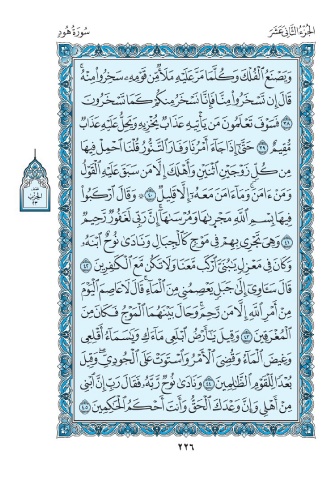 سُورَةُ هُودٍ
الجُزءُ الثَّانِي عَشَرَ
وَيَصْنَعُ ٱلْفُلْكَ وَكُلَّمَا مَرَّ عَلَيْهِ مَلَأٌ مِّن قَوْمِهِۦ سَخِرُوا۟ مِنْهُ ۚ
قَالَ إِن تَسْخَرُوا۟ مِنَّا فَإِنَّا نَسْخَرُ مِنكُمْ كَمَا تَسْخَرُونَ
٣٨ فَسَوْفَ تَعْلَمُونَ مَن يَأْتِيهِ عَذَابٌ يُخْزِيهِ وَيَحِلُّ عَلَيْهِ عَذَابٌ
مُّقِيمٌ ٣٩ حَتَّىٰٓ إِذَا جَآءَ أَمْرُنَا وَفَارَ ٱلتَّنُّورُ قُلْنَا ٱحْمِلْ فِيهَا
مِن كُلٍّ زَوْجَيْنِ ٱثْنَيْنِ وَأَهْلَكَ إِلَّا مَن سَبَقَ عَلَيْهِ ٱلْقَوْلُ
وَمَنْ ءَامَنَ ۚ وَمَآ ءَامَنَ مَعَهُۥٓ إِلَّا قَلِيلٌ ٤٠ ۞ وَقَالَ ٱرْكَبُوا۟
فِيهَا بِسْمِ ٱللَّهِ مَجْر۪ىٰهَا وَمُرْسَىٰهَآ ۚ إِنَّ رَبِّى لَغَفُورٌ رَّحِيمٌ
٤١ وَهِىَ تَجْرِى بِهِمْ فِى مَوْجٍ كَٱلْجِبَالِ وَنَادَىٰ نُوحٌ ٱبْنَهُۥ
وَكَانَ فِى مَعْزِلٍ يَٰبُنَىَّ ٱرْكَب مَّعَنَا وَلَا تَكُن مَّعَ ٱلْكَٰفِرِينَ ٤٢
قَالَ سَـَٔاوِىٓ إِلَىٰ جَبَلٍ يَعْصِمُنِى مِنَ ٱلْمَآءِ ۚ قَالَ لَا عَاصِمَ ٱلْيَوْمَ
مِنْ أَمْرِ ٱللَّهِ إِلَّا مَن رَّحِمَ ۚ وَحَالَ بَيْنَهُمَا ٱلْمَوْجُ فَكَانَ مِنَ
ٱلْمُغْرَقِينَ ٤٣ وَقِيلَ يَٰٓأَرْضُ ٱبْلَعِى مَآءَكِ وَيَٰسَمَآءُ أَقْلِعِى
وَغِيضَ ٱلْمَآءُ وَقُضِىَ ٱلْأَمْرُ وَٱسْتَوَتْ عَلَى ٱلْجُودِىِّ ۖ وَقِيلَ
بُعْدًا لِّلْقَوْمِ ٱلظَّٰلِمِينَ ٤٤ وَنَادَىٰ نُوحٌ رَّبَّهُۥ فَقَالَ رَبِّ إِنَّ ٱبْنِى
مِنْ أَهْلِى وَإِنَّ وَعْدَكَ ٱلْحَقُّ وَأَنتَ أَحْكَمُ ٱلْحَٰكِمِينَ ٤٥
٢٢٦